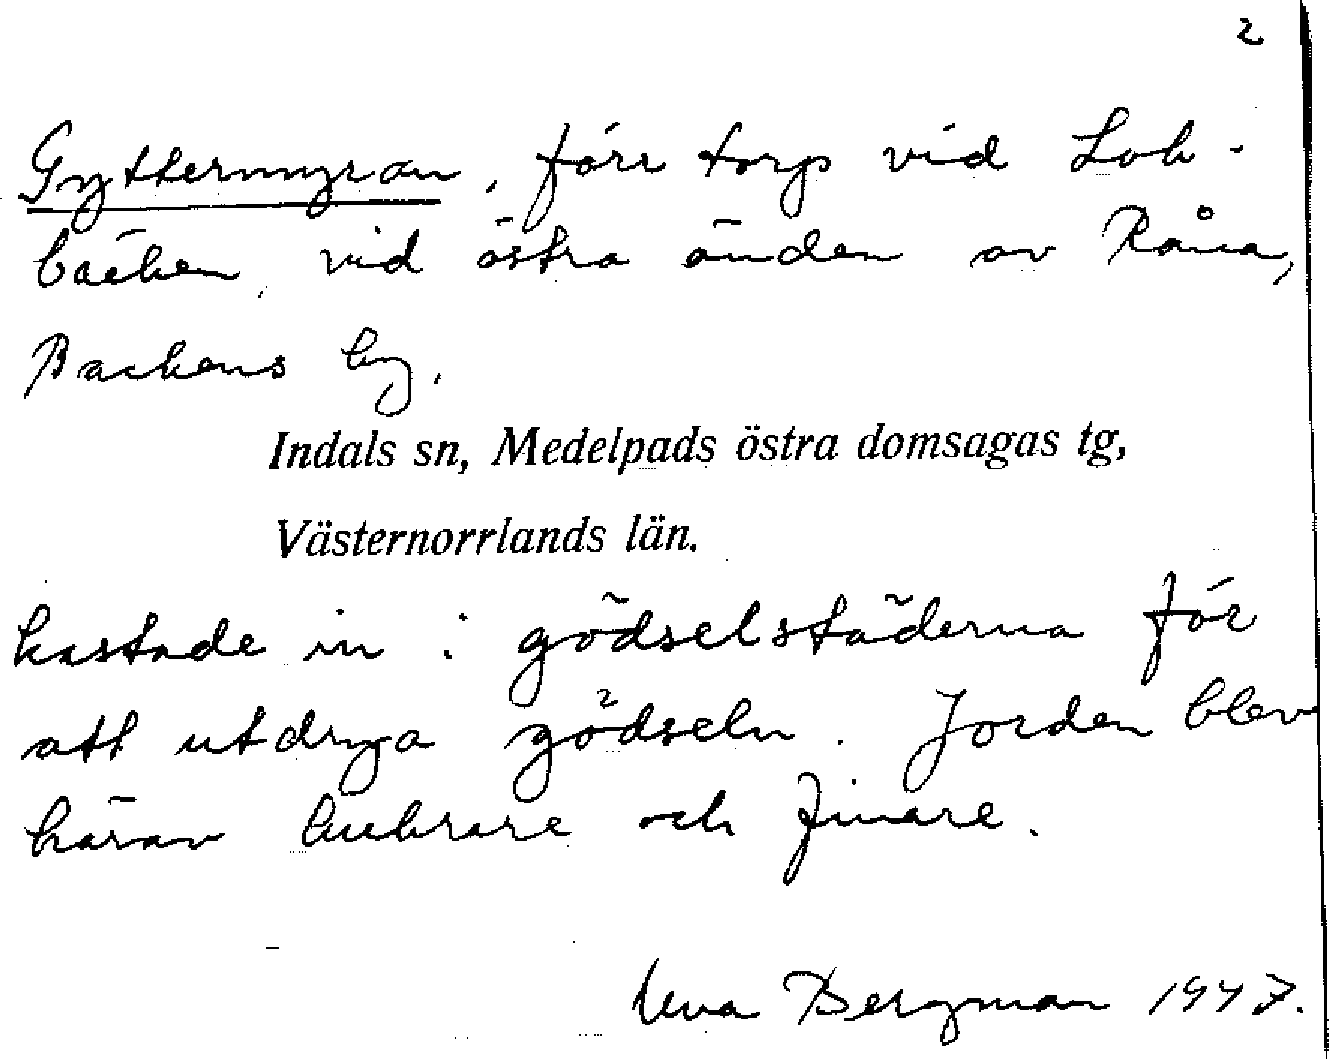 2
Gyttermyran, förr torp vid Lok-
bäcken vid östra änden av Råna,
Backens by.
Indals sn, Medelpads östra domsagas tg,
Västernorrlands län.
kastade in i gödselstäderna för
att utdryga gödseln. Jorden blev
härav luckrare och finare.
Bergman 1947.